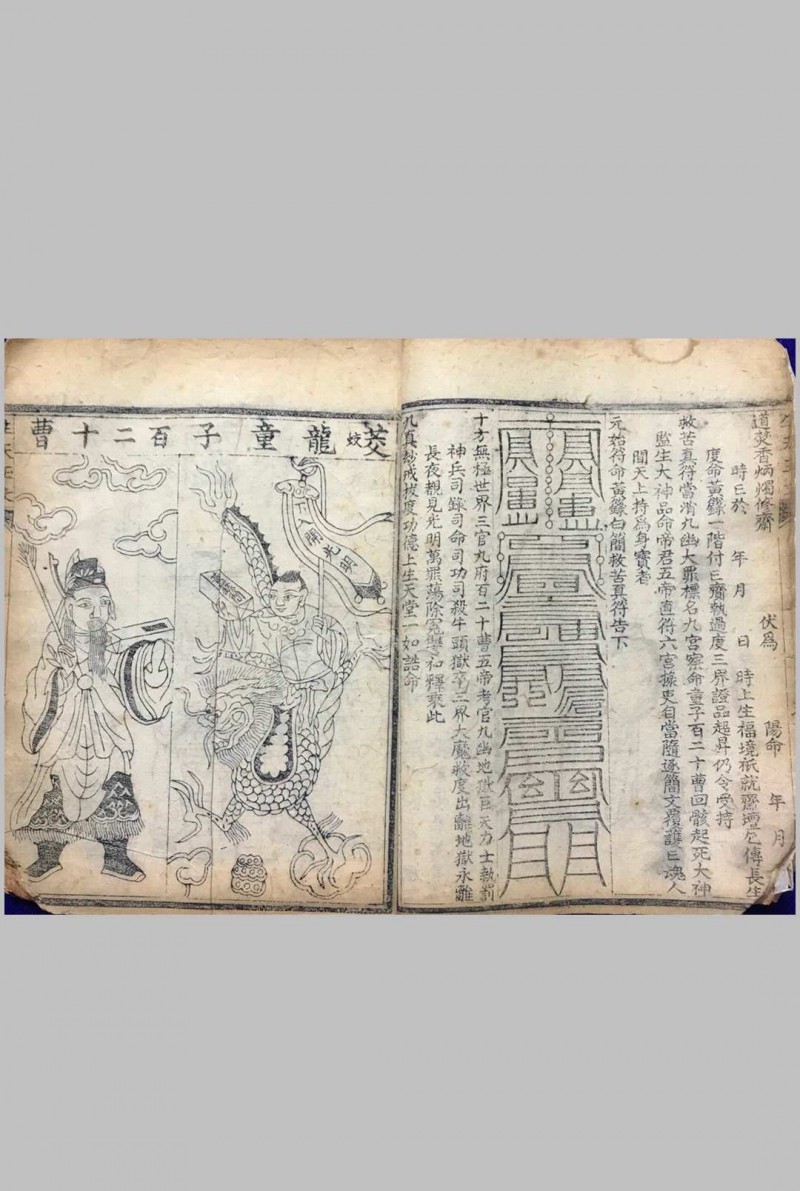 道焚香炳燭修齋 伏為 陽命 年 月
時亡於 年 月 日 時上生福境祇就齋壇 傳長生
度命黃籙一階付亡齎執過度三界證品超昇仍令受持
救苦真符當消九幽大罪標名九宮察命童子百二十曹回骸起死大神
監生大神品命帝君五帝直符六宮掾吏自當隨逐簡文覆護亡魂人
間天上持為身寶者
元始符命黃籙白簡救苦真符告下
十方無極世界三官九府百二十曹五帝考官九幽地獄巨天力士執罰
神兵司錄司命司功司殺牛頭獄卒三界大魔救度出離地獄永離
長夜覩見光明萬罪蕩除冤讐和釋乘此
九真玅戒拔度功德上生天堂一如誥命
茭蛟龍童子百二十曹